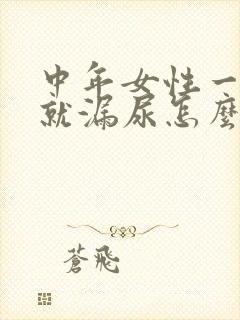 中年女性一
就漏尿怎麼
蒼飛